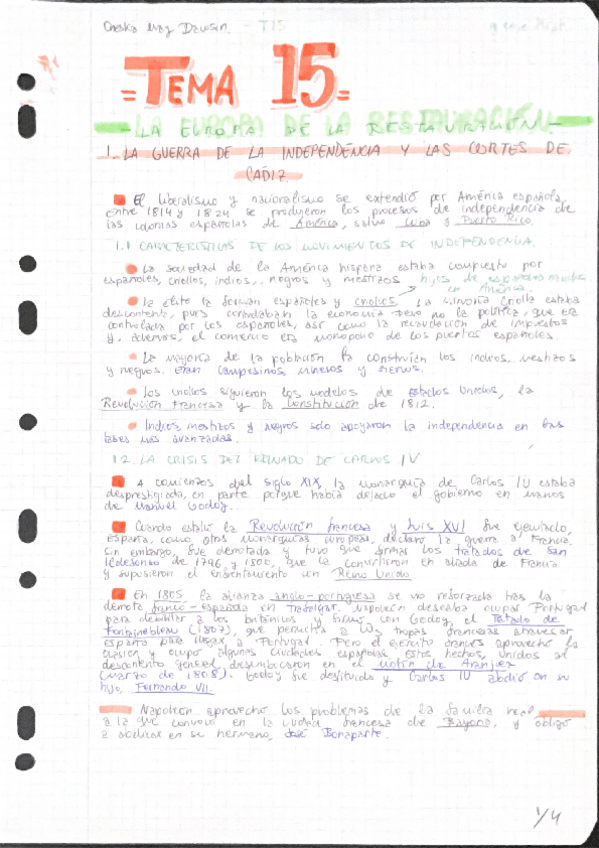 Cheska May Dawson. - T15
= TEMA 15 =
- LA EUROPA DE LA RESTAURACIÓN. -
1. LA GUERRA DE LA INDEPENDENCIA Y LAS CORTES DE
CÁDIZ.
El liberalismo y nacionalismo se extendió por América española,
entre 1814 y 1824 se produjeron los procesos de independencia de
las colonias españolas de América, salvo Cuba y Puerto Rico.
1.1 CARACTERÍSTICAS DE LOS MOVIMIENTOS DE INDEPENDENCIA.
La sociedad de la América hispana estaba compuesta por
españoles, criollos, indios, negros y mestizos hijos de españoles nacidos
en América.
La élite la forman españoles y criollos. La minoría criolla estaba
descontenta, pues controlaban la economía pero no la política, que era
controlada por los españoles, así como la recaudación de impuestos
y, además, el comercio era monopolio de los puertos españoles.
La mayoría de la población la constituían los indios, mestizos
y negros. Eran campesinos, mineros y siervos.
Los criollos siguieron los modelos de Estados Unidos, la
Revolución Francesa y la Constitución de 1812.
Indios, mestizos y negros solo apoyaron la independencia en fases
más avanzadas.
1.2. LA CRISIS DEL REINADO DE CARLOS IV
A comienzos del siglo XIX, la monarquía de Carlos IV estaba
desprestigiada, en parte porque había dejado el gobierno en manos
de Manuel Godoy.
Cuando estalló la Revolución francesa y Luis XVI fue ejecutado,
España, como otras monarquías europeas, declaró la guerra a Francia.
Sin embargo, fue derrotada y tuvo que firmar los tratados de San
Ildefonso de 1796 y 1800, que la convirtieron en aliada de Francia
y supusieron el enfrentamiento con Reino Unido
En 1805 la alianza anglo-portuguesa se vio reforzada tras la
derrota franco-española en Trafalgar. Napoleón deseaba ocupar Portugal
para debilitar a los británicos y firmó con Godoy, el Tratado de
Fontainebleau (1807), que permitía a las tropas francesas atravesar
España para llegar a Portugal. Pero el ejército francés aprovechó la
ocasión y ocupó algunas ciudades españolas. Estos hechos, unidos al
descontento general, desembocaron en el motín de Aranjuez
(marzo de 1808). Godoy fue destituido y Carlos IV abdicó en su
hijo, Fernando VII.
Napoleón aprovechó los problemas de la familia real
a la que convocó en la ciudad francesa de Bayona, y obligó
a abdicar en su hermano, José Bonaparte.
1/4